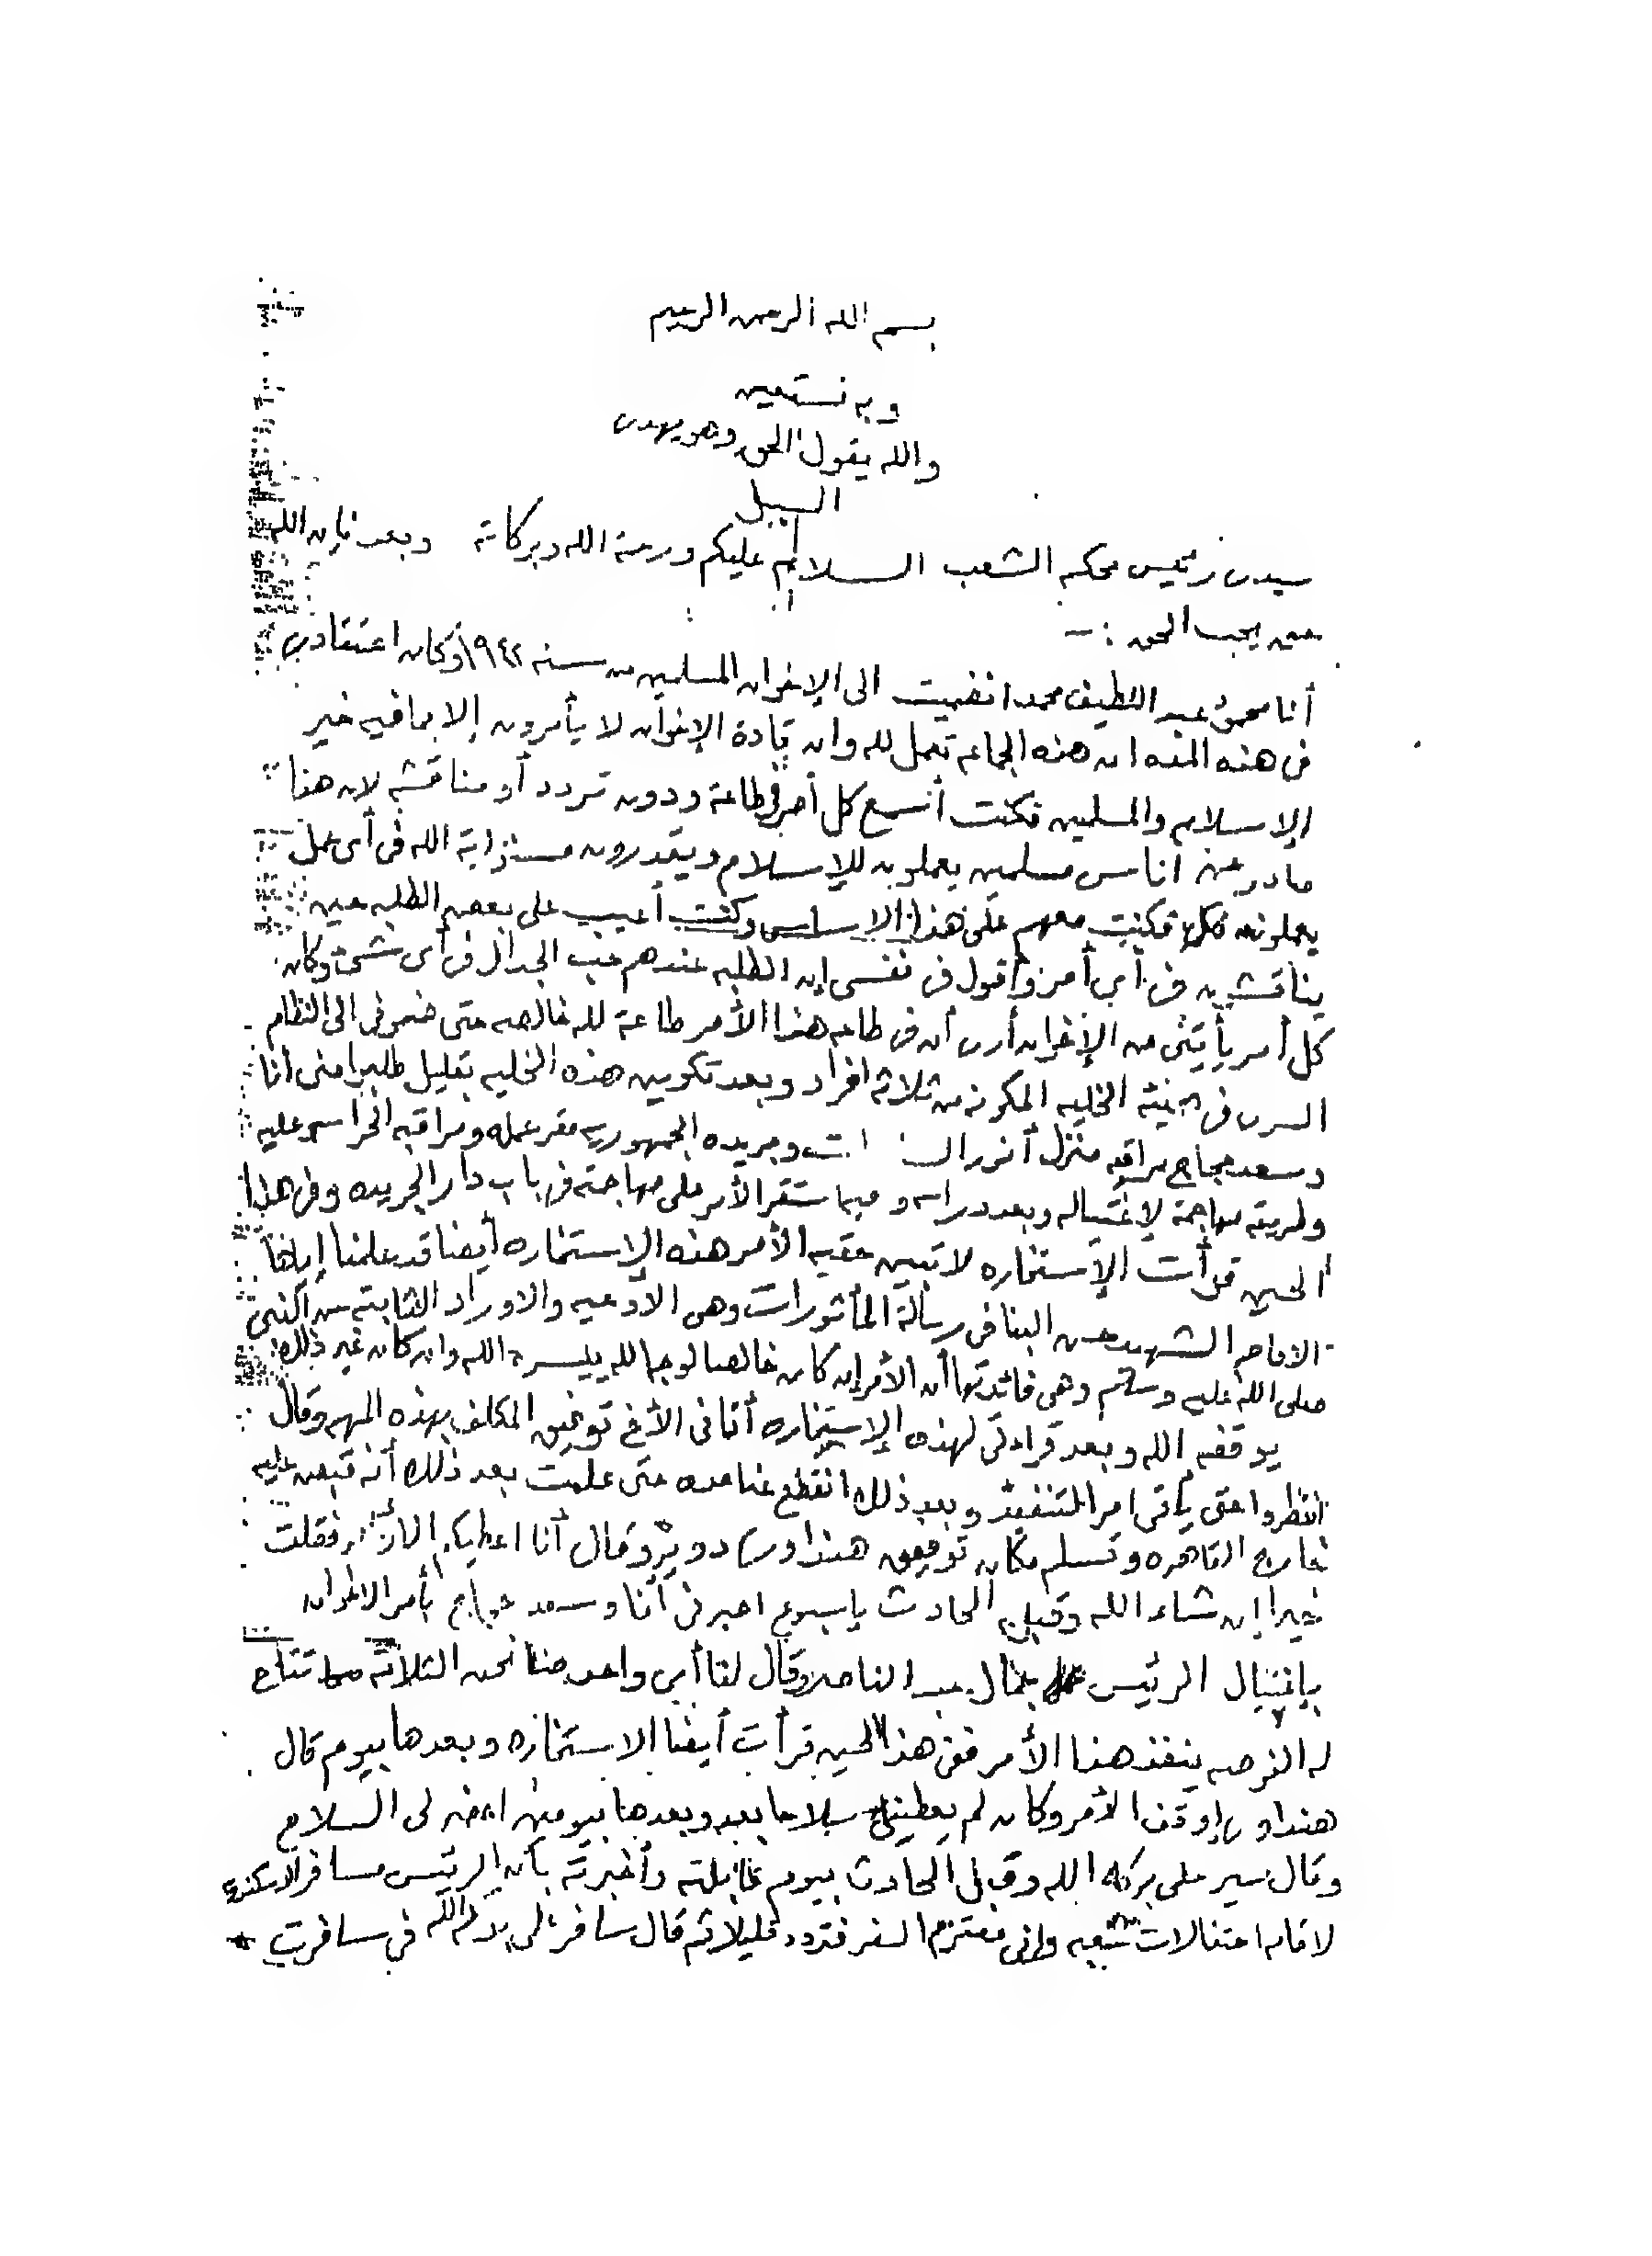 بسم الله الرحمن الرحيم
وبه نستعين
والله يقول الحق وهو يهدى
السبيل
سيدى رئيس محكمه الشعب السلام عليكم ورحمة الله وبركاته وبعد فإن الله
حق يحب الحق :-
أنا محمود عبد اللطيف محمد انضميت الى الإخوان المسلمين من سنه ١٩٤٢ وكان اعتقادى
فى هذه المده ان هذه الجماعه تعمل لله وان قادة الإخوان لا يأمرون إلا بما فيه خير
الإسلام والمسلمين فكنت أسمع كل أمر فى طاعة ودون تردد أو مناقشه لان هذا
صادر عن اناس مسلمين يعملون للإسلام ويقدرون مسئولية الله فى أى عمل
يعملونه فكنت معهم على هذا الاساس وكنت أعيب على بعض الطلبه حين
يناقشون فى أى أمر وأقول فى نفسى إن الطلبه عندهم حب الجدال فى أى شئ وكان
كل أمر يأتينى من الإخوان أرى أن فى طاعه هذا الأمر طاعة لله خالصه حتى ضمونى الى النظام
السرى فى هيئة الخليه المكونه من ثلاثه افراد وبعد تكوين هذه الخليه بقليل طلبوا منى أنا
وسعد حجاج مراقبه منزل أنور السادات وجريده الجمهوريه مقر عمله ومراقبه الحراسه عليه
وطريقه مهاجمة لإغتياله وبعد دراسه استقر الأمر على مهاجمته فى باب دار الجريده وفى هذا
الحين قرأت الإستخاره لاتبين حقيه الأمر هذه الإستخاره أيضا قد علمنا إياها
الامام الشهيد حسن البنا فى رسالة المأثورات وهى الأدعيه والاوراد الثابته عن النبى
صلى الله عليه وسلم وهى فائدتها أن الأمر إن كان خالصا لوجه الله ييسره الله وان كان غير ذلك
يوقفه الله وبعد قراءتى لهذه الإستخاره أتانى الأخ توفيق المكلف بهذه المهمه وقال
انتظروا حتى يأتى امر التنفيذ وبعد ذلك انقطع عنا مده حتى علمت بعد ذلك أنه قبض عليه
خارج القاهره وتسلم مكان توفيق هنداوى دوير وقال أنا اعطيك الاذن فقلت
خيرا إن شاء الله وقبل الحادث باسبوع اخبرنى أنا وسعد حجاج بأمر الاخوان
بإغتيال الرئيس جمال عبد الناصر وقال لنا أى واحد منا نحن الثلاثه تتاح
له الفرصه ينفذ هذا الأمر ففى هذا الحين قرأت أيضا الاستخاره وبعدها بيوم قال
هنداوى إوقف الأمر وكان لم يعطينى سلاحا بعد وبعدها بيومين احضر لى السلاح
وقال سير على بركه الله وقبل الحادث بيوم قابلته وأخبرته بأن الرئيس مسافر الاسكندريه
لاقامه احتفالات شعبيه وإنى معتزم السفر فتردد قليلا ثم قال سافر على بركه الله فسافرت